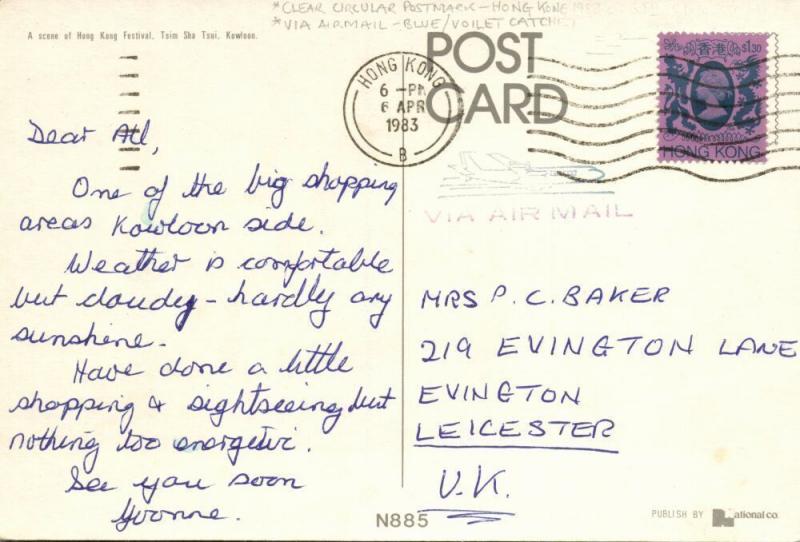 *CLEAR CIRCULAR POSTMARK - HONG KONG
*VIA AIRMAIL - BLUE/VOILET CATCHET
A scene of Hong Kong Festival, Tsim Sha Tsui, Kowloon.
POST
CARD
HONG KONG
6 -PM
6 APR
1983
B
香港 $1.30
HONG KONG
VIA AIR MAIL
Dear All,
One of the big shopping
areas Kowloon side.
Weather is comfortable
but cloudy - hardly any
sunshine.
Have done a little
shopping & sightseeing but
nothing too energetic.
See you soon
Yvonne.
MRS P. C. BAKER
219 EVINGTON LANE
EVINGTON
LEICESTER
U.K.
N885
PUBLISH BY National co.